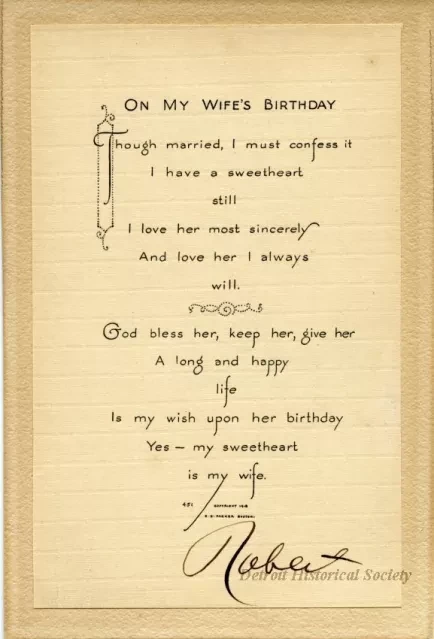 ON MY WIFE'S BIRTHDAY
Though married, I must confess it
I have a sweetheart
still
I love her most sincerely
And love her I always
will.
God bless her, keep her, give her
A long and happy
life
Is my wish upon her birthday
Yes – my sweetheart
is my wife.
451
COPYRIGHT
Robert
Detroit Historical Society